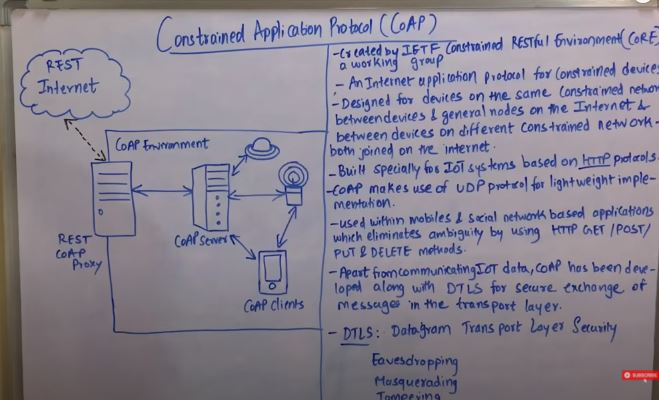 Constrained Application Protocol (CoAP)
REST
Internet
CoAP Environment
REST
CoAP
Proxy
CoAP server
CoAP clients
- Created by IETF Constrained RESTful Environment (CoRE)
a working group
- An Internet application Protocol for constrained devices
- Designed for devices on the same constrained network
between devices & general nodes on the Internet &
between devices on different constrained network -
both joined on the internet.
- Built specially for IoT systems based on HTTP protocols.
- CoAP makes use of UDP protocol for lightweight imple-
mentation.
- used within mobiles & social network based applications
which eliminates ambiguity by using HTTP GET/POST/
PUT & DELETE methods.
- Apart from communicating IOT data, CoAP has been deve-
loped along with DTLS for secure exchange of
messages in the transport layer.
- DTLS: Datagram Transport Layer Security
Eavesdropping
Masquerading
Tampering
SUBSCRIBE